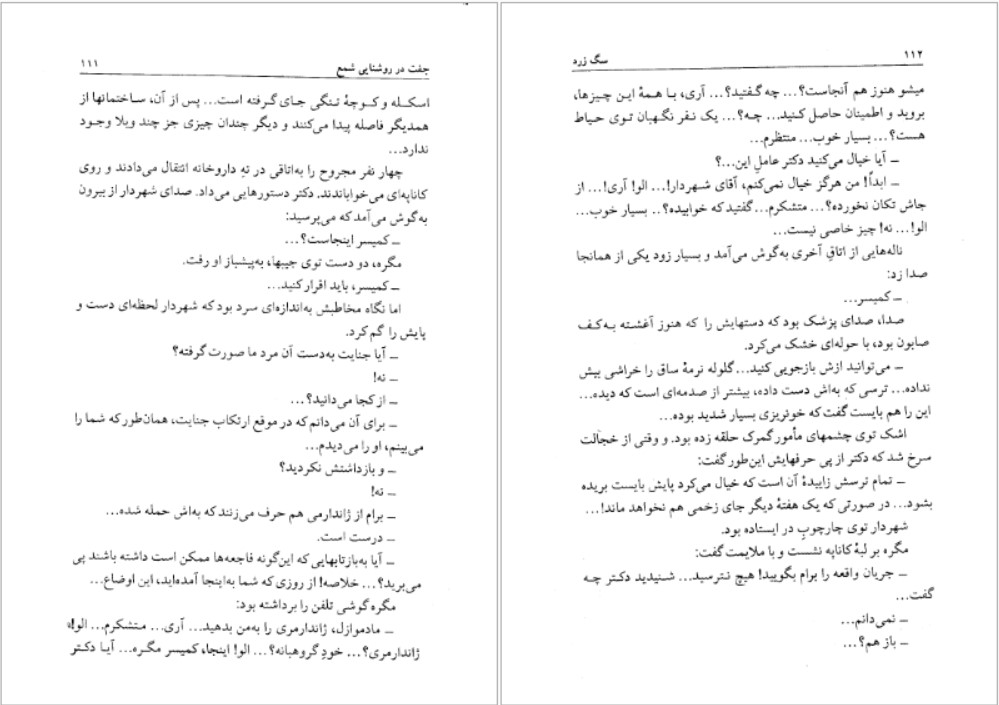 جفت در روشنایی شمع ۱۱۱
اسکله و کوچهٔ تنگی جای گرفته است... پس از آن، ساختمانها از
همدیگر فاصله پیدا می‌کنند و دیگر چندان چیزی جز چند ویلا وجود
ندارد...
چهار نفر مجروح را به‌اتاقی در تهِ داروخانه انتقال می‌دادند و روی
کاناپه‌ای می‌خواباندند. دکتر دستورهایی می‌داد. صدای شهردار از بیرون
به‌گوش می‌آمد که می‌پرسید:
ــ کمیسر اینجاست؟...
مگره، دو دست توی جیبها، به‌پیشباز او رفت.
ــ کمیسر، باید اقرار کنید...
اما نگاه مخاطبش به‌اندازه‌ای سرد بود که شهردار لحظه‌ای دست و
پایش را گم کرد.
ــ آیا جنایت به‌دست آن مرد ما صورت گرفته؟
ــ نه!
ــ از کجا می‌دانید؟...
ــ برای آن می‌دانم که در موقع ارتکاب جنایت، همان‌طور که شما را
می‌بینم، او را می‌دیدم...
ــ و بازداشتش نکردید؟
ــ نه!
ــ برام از ژاندارمی هم حرف می‌زنند که به‌اش حمله شده...
ــ درست است.
ــ آیا به‌بازتابهایی که این‌گونه فاجعه‌ها ممکن است داشته باشند پی
می‌برید؟... خلاصه! از روزی که شما به‌اینجا آمده‌اید، این اوضاع...
مگره گوشی تلفن را برداشته بود:
ــ مادموازل، ژاندارمری را به‌من بدهید... آری... متشکرم... الو!
ژاندارمری؟... خودِ گروهبانه؟... الو! اینجا، کمیسر مگره... آیا دکتر
۱۱۲ سگ زرد
میشو هنوز هم آنجاست؟... چه گفتید؟... آری، با همهٔ این چیزها،
بروید و اطمینان حاصل کنید... چه؟... یک نفر نگهبان توی حیاط
هست؟... بسیار خوب... منتظرم...
ــ آیا خیال می‌کنید دکتر عاملِ این...؟
ــ ابداً! من هرگز خیال نمی‌کنم، آقای شهردار!... الو! آری!... از
جاش تکان نخورده؟... متشکرم... گفتید که خوابیده؟.. بسیار خوب...
الو!... نه! چیز خاصی نیست...
ناله‌هایی از اتاقِ آخری به‌گوش می‌آمد و بسیار زود یکی از همانجا
صدا زد:
ــ کمیسر...
صدا، صدای پزشک بود که دستهایش را که هنوز آغشته به‌کف
صابون بود، با حوله‌ای خشک می‌کرد.
ــ می‌توانید ازش بازجویی کنید... گلوله نرمهٔ ساق را خراشی بیش
نداده... ترسی که به‌اش دست داده، بیشتر از صدمه‌ای است که دیده...
این را هم بایست گفت که خونریزی بسیار شدید بوده...
اشک توی چشمهای مأمور گمرک حلقه زده بود. و وقتی از خجالت
سرخ شد که دکتر از پی حرفهایش این‌طور گفت:
ــ تمام ترسش زاییدهٔ آن است که خیال می‌کرد پایش بایست بریده
بشود... در صورتی که یک هفتهٔ دیگر جای زخمی هم نخواهد ماند!...
شهردار توی چارچوبِ در ایستاده بود.
مگره بر لبهٔ کاناپه نشست و با ملایمت گفت:
ــ جریان واقعه را برام بگویید! هیچ نترسید... شنیدید دکتر چه
گفت...
ــ نمی‌دانم...
ــ باز هم؟...